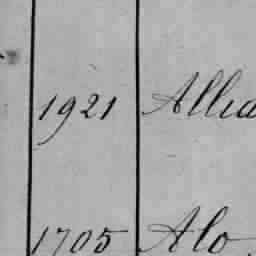 1921 Allia
1705 Alo